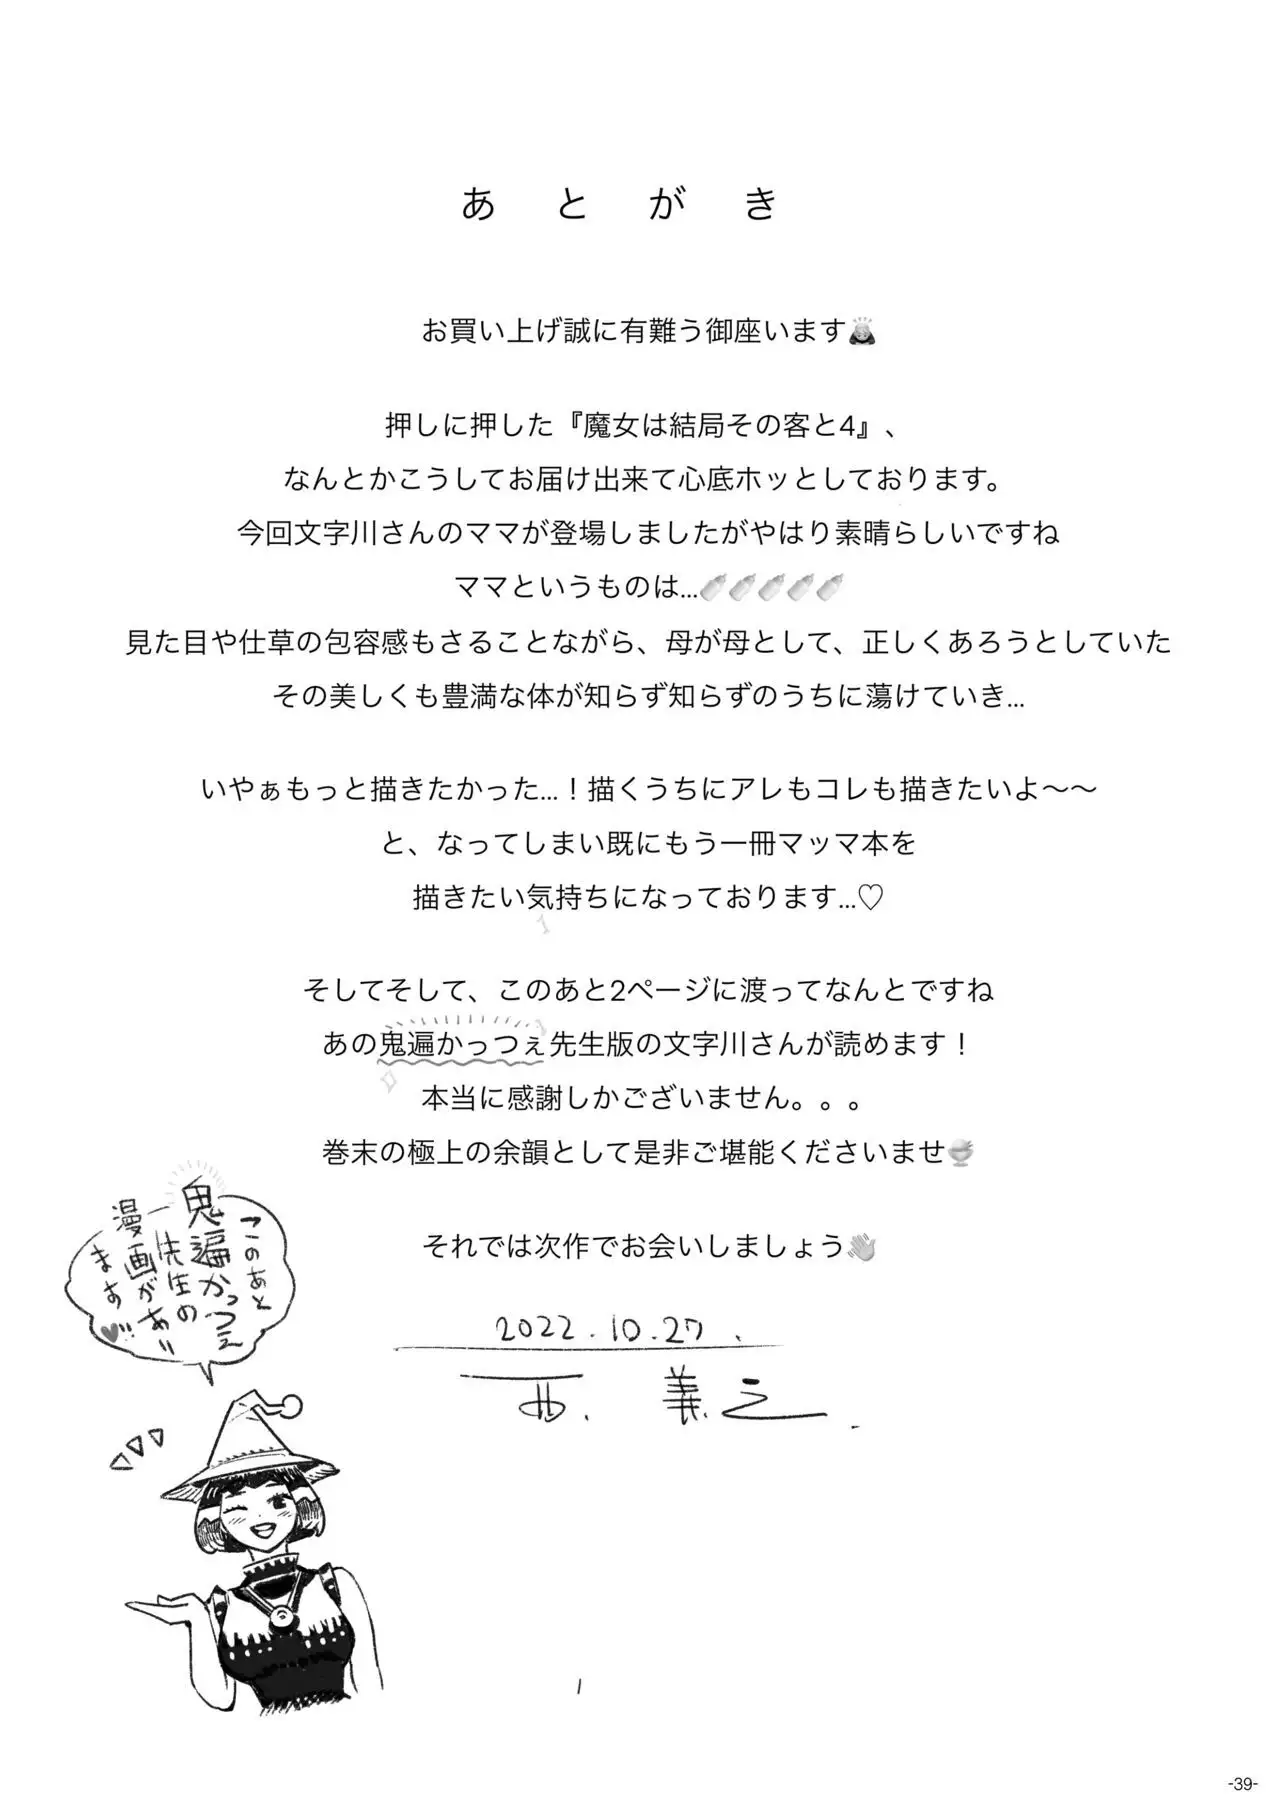 あとがき
お買い上げ誠に有難う御座います🙇
押しに押した『魔女は結局その客と4』、
なんとかこうしてお届け出来て心底ホッとしております。
今回文字川さんのママが登場しましたがやはり素晴らしいですね
ママというものは...🍼🍼🍼🍼🍼
見た目や仕草の包容感もさることながら、母が母として、正しくあろうとしていた
その美しくも豊満な体が知らず知らずのうちに蕩けていき...
いやぁもっと描きたかった...！描くうちにアレもコレも描きたいよ〜〜
と、なってしまい既にもう一冊マッマ本を
描きたい気持ちになっております...♡
そしてそして、このあと2ページに渡ってなんとですね
あの鬼遍かっつぇ先生版の文字川さんが読めます！
本当に感謝しかございません。。。
巻末の極上の余韻として是非ご堪能くださいませ🍚
それでは次作でお会いしましょう👋
このあと
鬼遍かっつぇ
先生の
漫画があり
ます♥
2022.10.27.
西.義之.
-39-